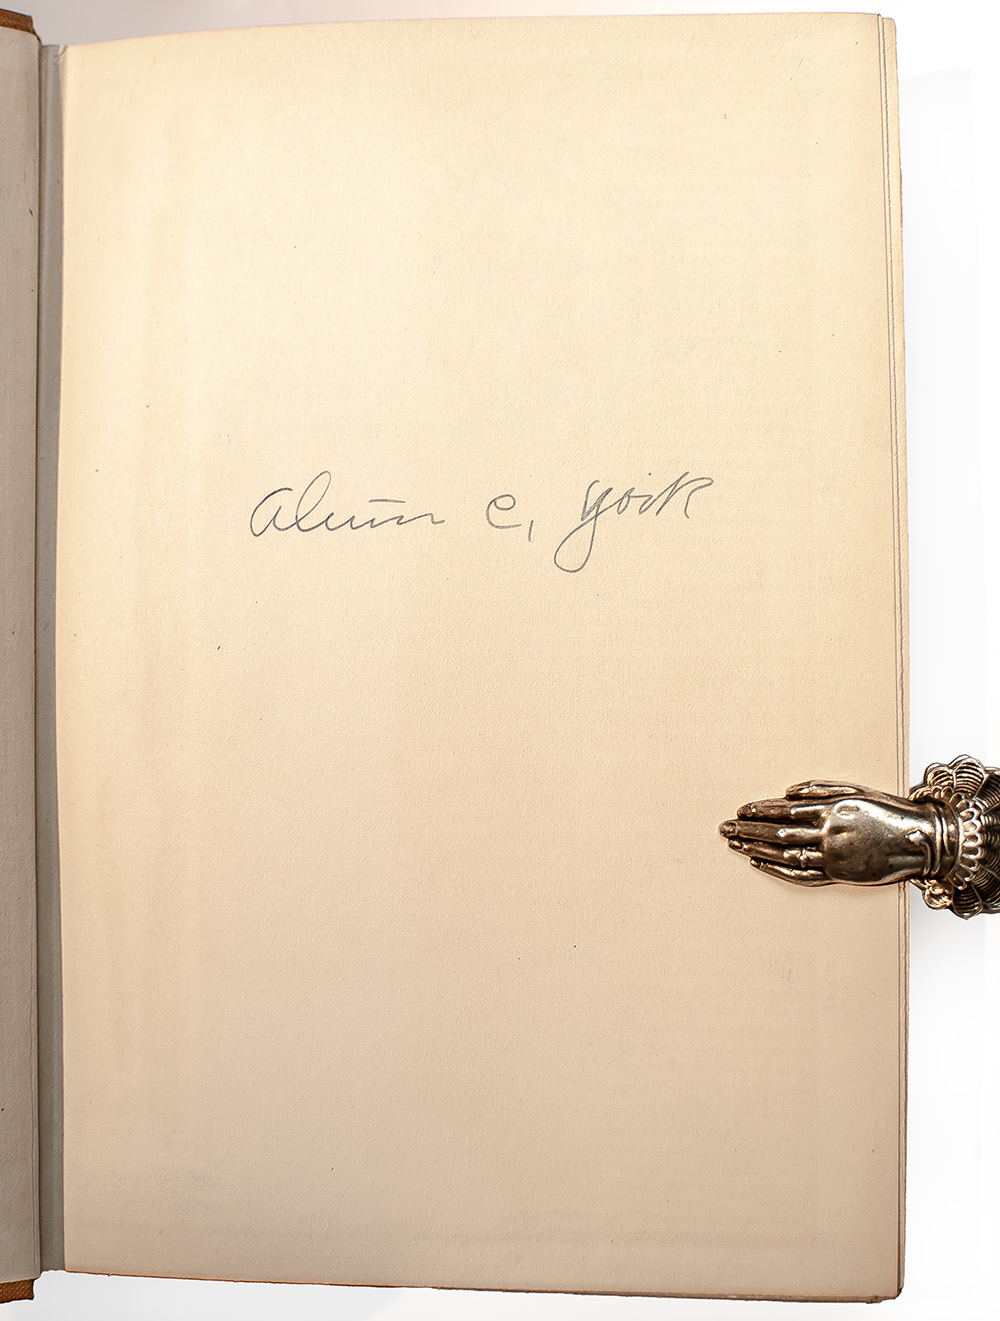 Alvin C. York